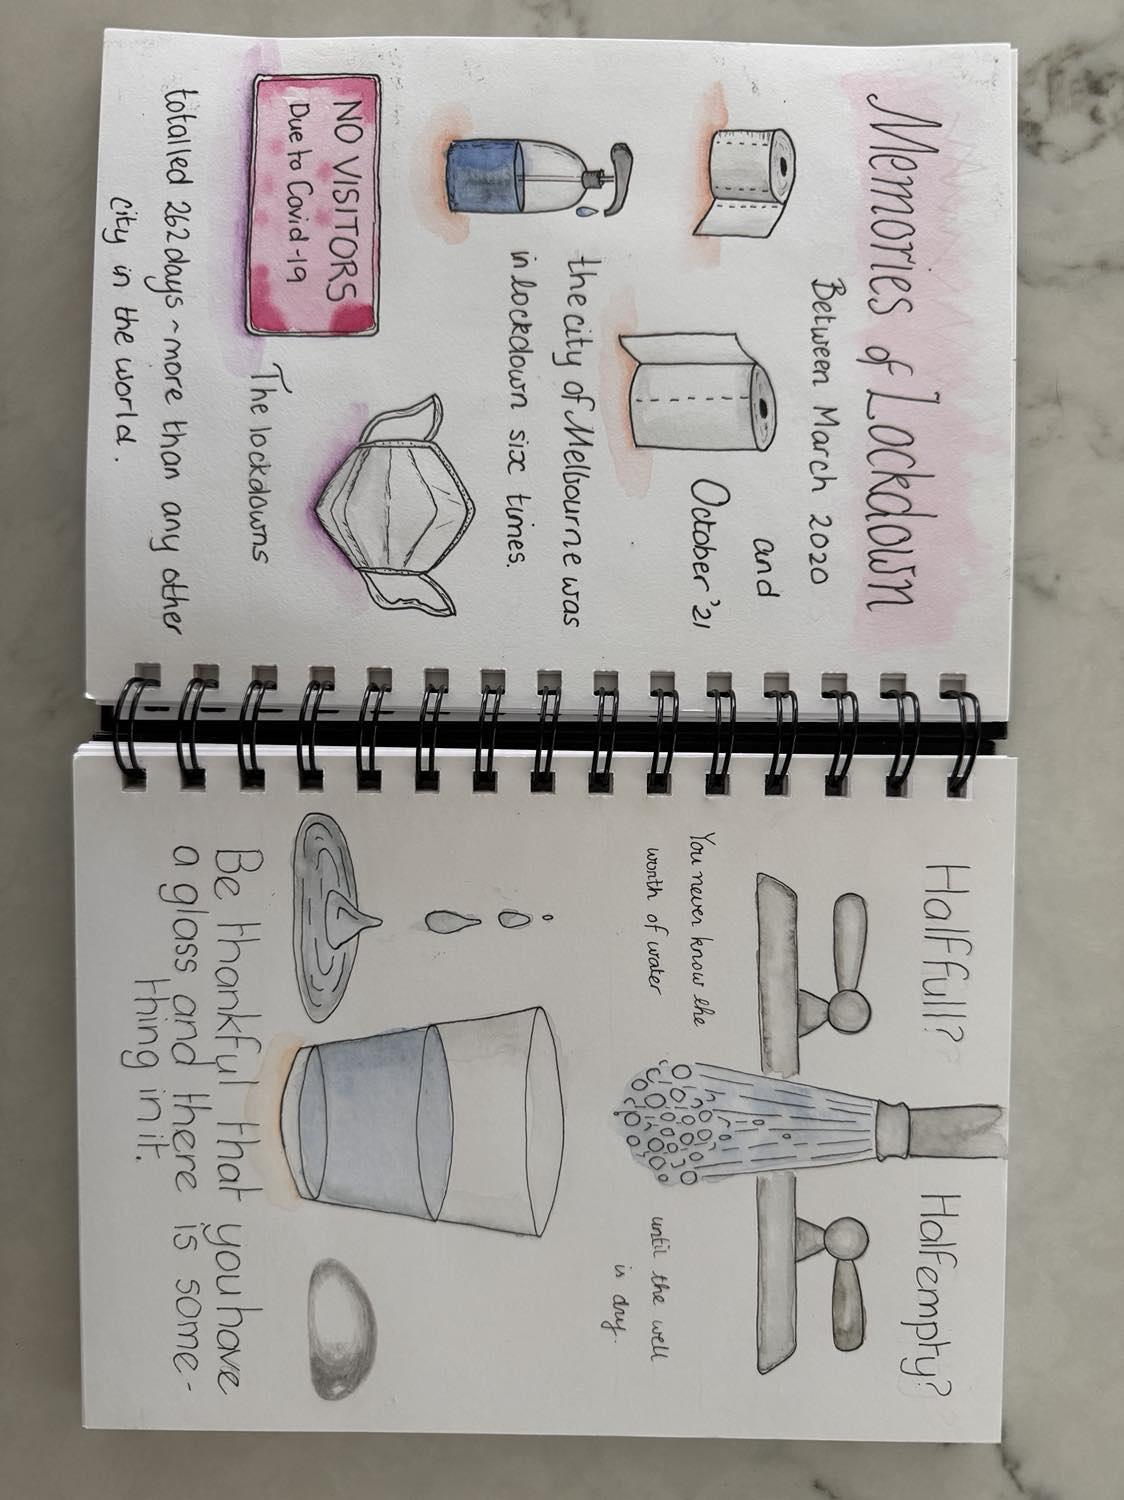 Memories of Lockdown
Between March 2020
and
October '21
the city of Melbourne was
in lockdown six times.
NO VISITORS
Due to Covid-19
The lockdowns
totalled 262 days ~ more than any other
city in the world.
Half full?
Half empty?
You never know the
worth of water
until the well
is dry.
Be thankful that you have
a glass and there is some-
thing in it.